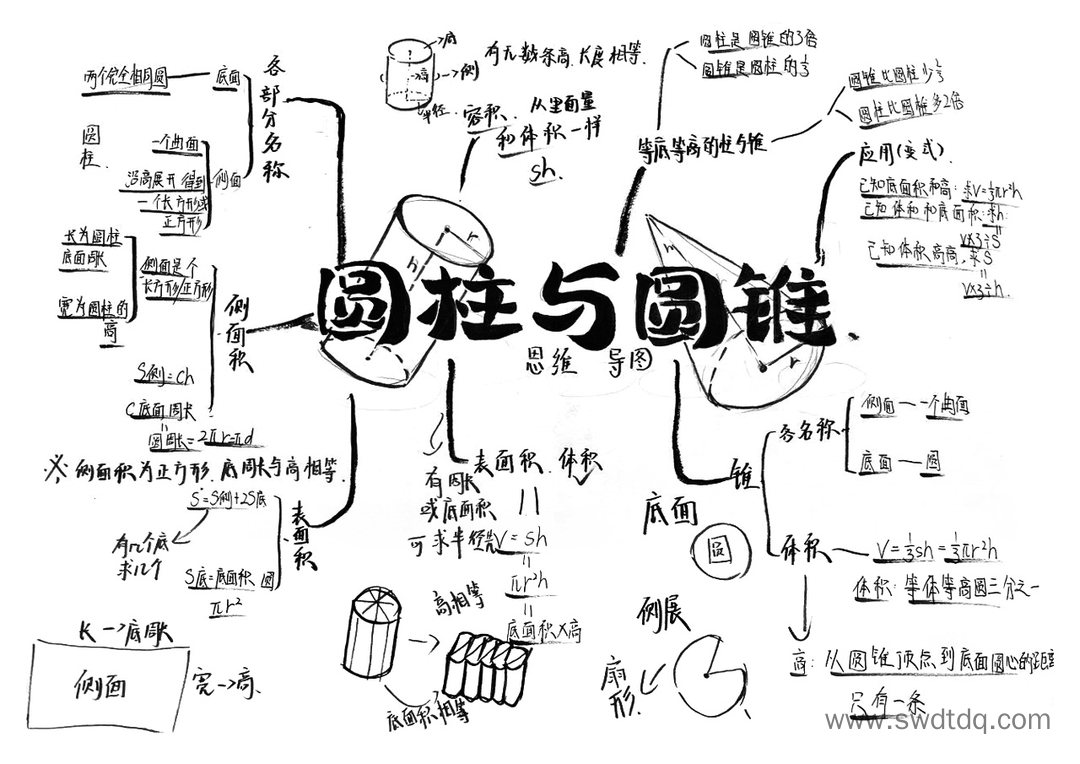 圆柱与圆锥
思维 导图
各部分名称
底面
两个完全相同圆
圆柱
侧面
一个曲面
沿高展开得到
一个长方形或
正方形
侧面积
侧面是个
长方形/正方形
长为圆柱
底面周长
宽为圆柱的
高
S侧=Ch
C底面周长
圆周长=2πr=πd
※ 侧面积为正方形.底周长与高相等.
表面积
S=S侧+2S底
有几个底
求几个
S底=底面积 圆
πr²
长→底周长
侧面
宽→高.
底
高
侧
半径
有无数条高.长度相等.
容积.
从里面量
和体积一样
sh.
有周长
或底面积
可求半径
表面积.体积
V=sh
πr²h
底面积×高
高相等
底面积相等
等底等高的柱与锥
圆柱是圆锥的3倍
圆锥是圆柱的⅓
圆锥比圆柱少⅔
圆柱比圆锥多2倍
应用(变式).
已知底面积和高:求V=⅓πr²h
已知体积和底面积:求h
V×3÷S
已知体积高高,求S
V×3÷h.
h
r
m
r
锥
各名称
侧面—一个曲面
底面—圆
体积—V=⅓sh=⅓πr²h
体积:等体等高圆三分之一
高:从圆锥顶点到底面圆心的距离
只有一条
底面
圆
侧展
扇形.
www.swdtdq.com